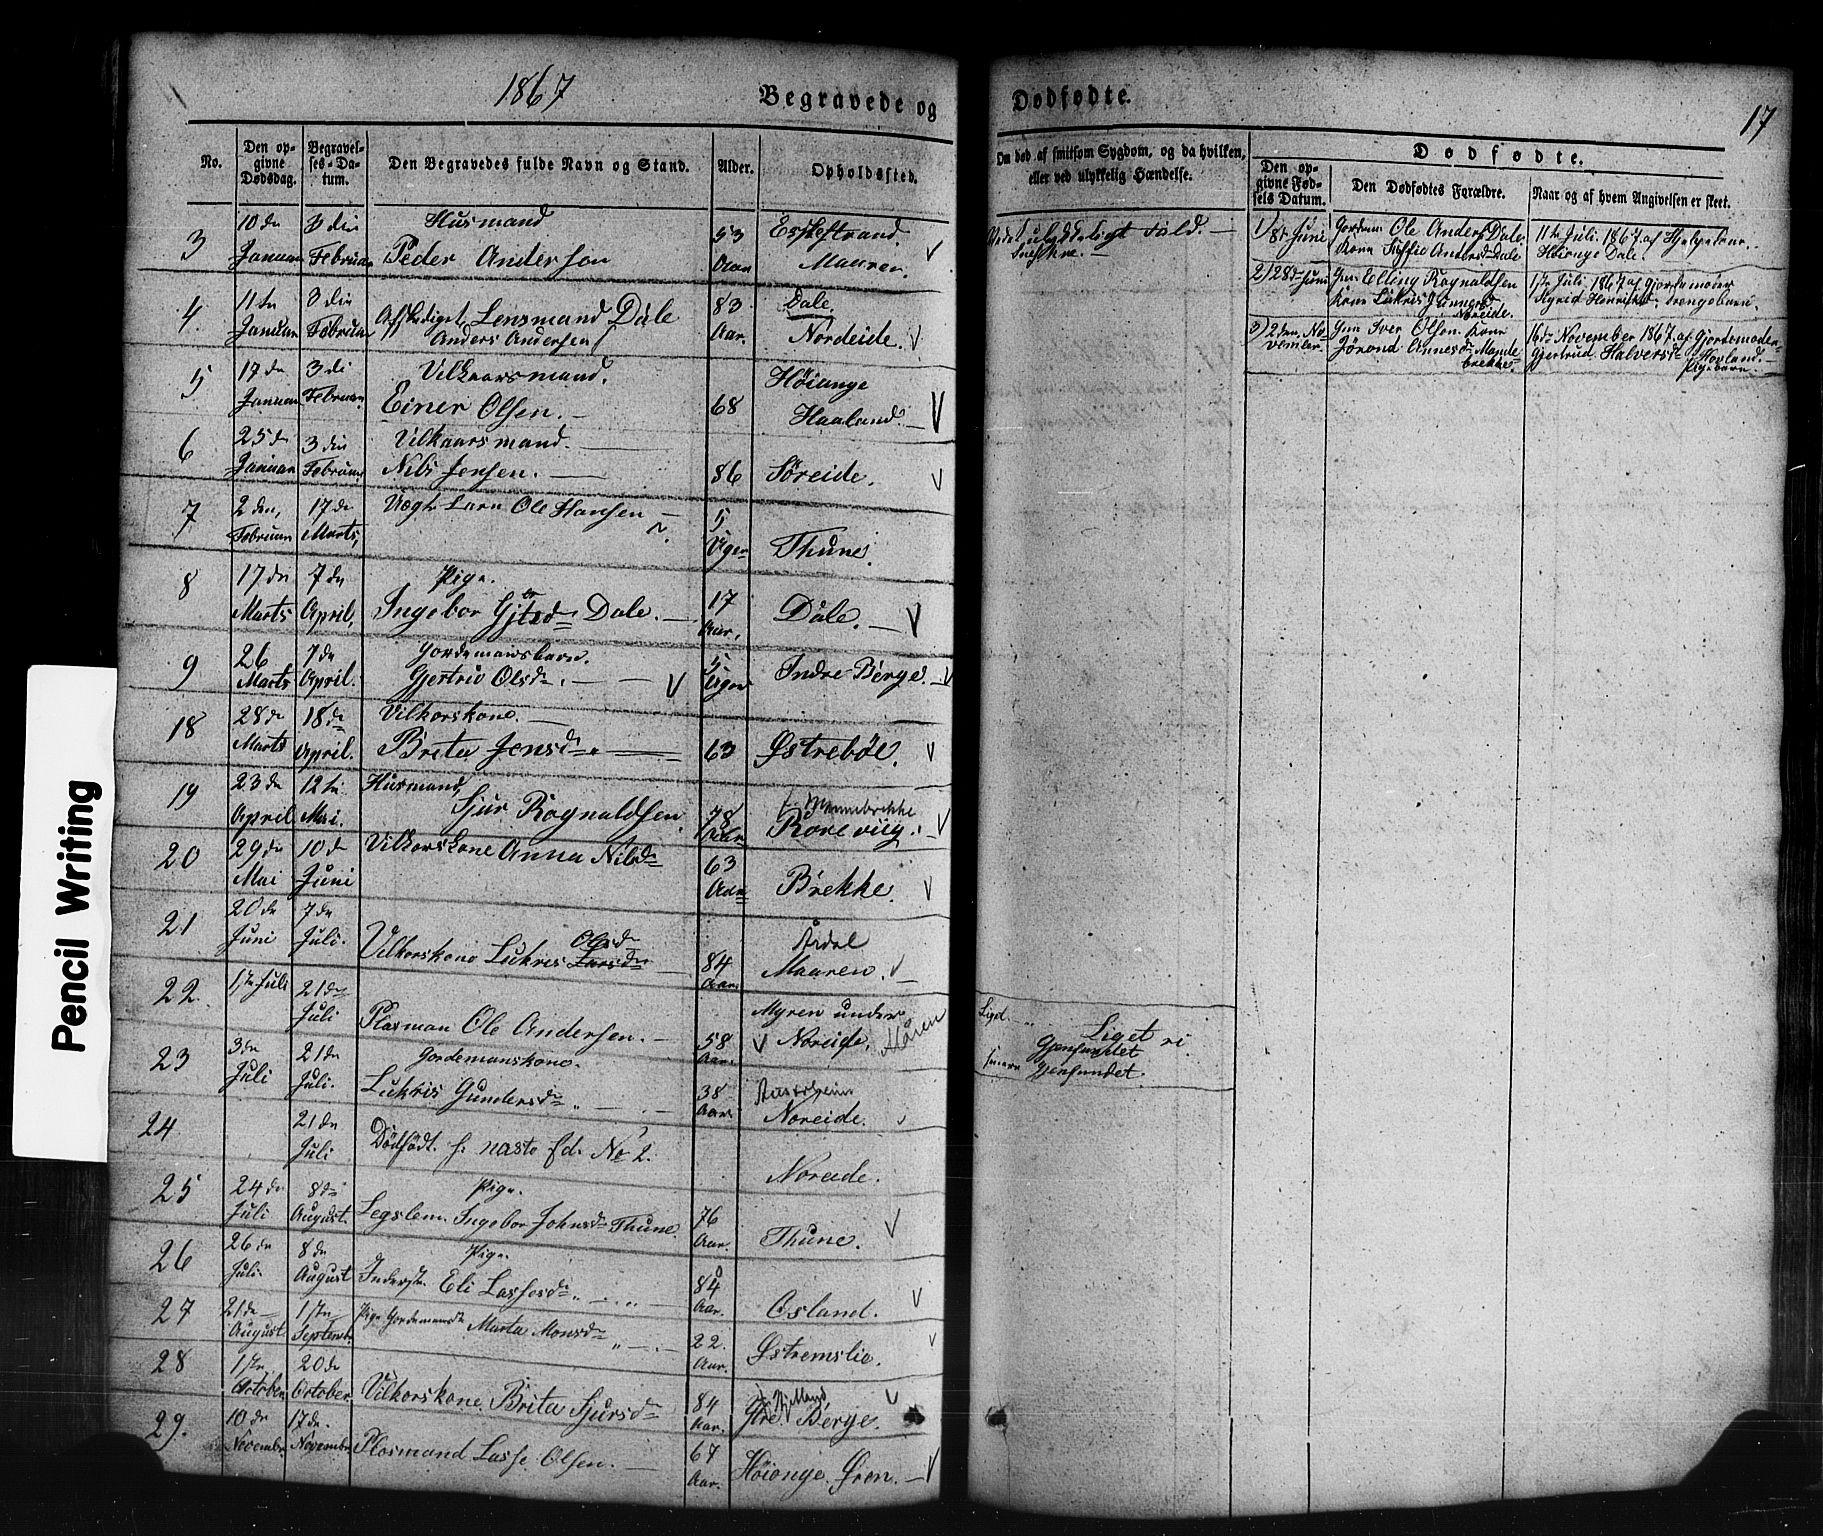 1867
Begravede og
Dødfødte.
17
No.
Den op-
givne
Dødsdag.
Begravel-
ses-Da-
tum.
Den Begravedes fulde Navn og Stand.
Alder.
Opholdssted.
Om død af smitsom Sygdom, og da hvilken,
eller ved ulykkelig Hændelse.
Dødfødte.
Den op-
givne Fød-
sels Datum.
Den Dødfødtes Forældre.
Naar og af hvem Angivelsen er skeet.
3
10de Januar
3die Februar
Husmand
Peder Andersen
53 Aar
Maaren.
4
11te Januar
3die Februar
Afskediget Lensmand Dale
Anders Andersen
83 Aar.
Dale
Nordeide.
5
17de Januar
3di Februar
Vilkaarsmand.
Einer Olsen.
68
Høiange
Haaland.
6
25de Januar
3die Februar
Vilkaarsmand.
Nils Jensen.
86
Søreide.
7
2den Februar
17de Marts,
Ole Hansen
5 Uger
Thune.
8
17de Marts
7de April,
Pige.
Ingebor Dale.
17 Aar.
Dale.
9
26 Marts
7de April.
Gordemansbarn.
Gjertrud Olsdr.
5 Uger
Indre Berge.
18
28de Marts
18de April.
Vilkorskone.
Brita Jensdr.
63
Østrebøe.
19
23de April
12te Mai.
Husmand,
Sjur Rognaldsen
78 Aar
Mannebrekke
Roreviig.
20
29de Mai
10de Juni
Vilkorskone Anna Nilsdr
63 Aar
Brekke.
21
20de Juni
7de Juli.
Olsdr
Vilkorskone Lukris Larsdr
84 Aar.
Årdal
Maaren.
22
1ste Juli
21de Juli
Plasman Ole Andersen.
58 Aar.
Myren under
Noreide.
Måren
Liget
Gjenfundet
gjenfundet.
23
3de Juli
21de Juli.
Gordemanskone.
Lukris Gundersdr
38 Aar.
Noreide.
24
21de Juli
Dødfødt. s. næste sd. No 2.
Noreide.
25
24de Juli
8de August.
Pige.
Legslem. Ingebor Johnsdr Thune.
76 Aar.
Thune.
26
26de Juli.
8de August
Pige.
Inderst. Eli Lassesdr
84 Aar.
Osland.
27
21de August
1ste September
Pige Gordemansdtr Marta Monsdr
22. Aar.
Østremslie.
28
1ste October
20de October.
Vilkorskone. Brita Sjursdr
84 Aar.
Ytre Berge.
29.
10de November
17de November
Plasmand Lasse Olsen.
67 Aar.
Høiange. Øren.
1) 8de Juni
Ole Anders. Dale
Kone Anders dr Dale
11te Juli. 1867. af Hjelpekone.
Høiange Dale.
2) 28de Juni
Gm. Elling Rognaldsen
Kone Lukris Gunnersd
Noreide.
1ste Juli. 1867 af Gjordemoder
drengebarn.
3) 2den November.
Gm Iver Olsen. Kone
Jørand Annesdr Mande-
brekke.
16de November 1867. af Gjordemoder
Gjertrud Halversdr Hovland.
Pigebarn.
Pencil Writing